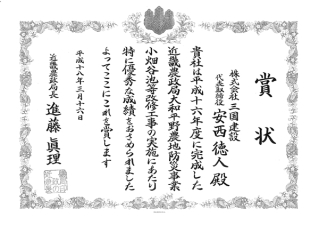 賞状
株式会社 三国建設
代表取締役 安西徳人 殿
貴社は平成十六年度に完成した
近畿農政局大和平野農地防災事業
小畑谷池等改修工事の実施にあたり
特に優秀な成績をおさめられました
よってここにこれを賞します
平成十八年三月十六日
近畿農政局長 進藤眞理